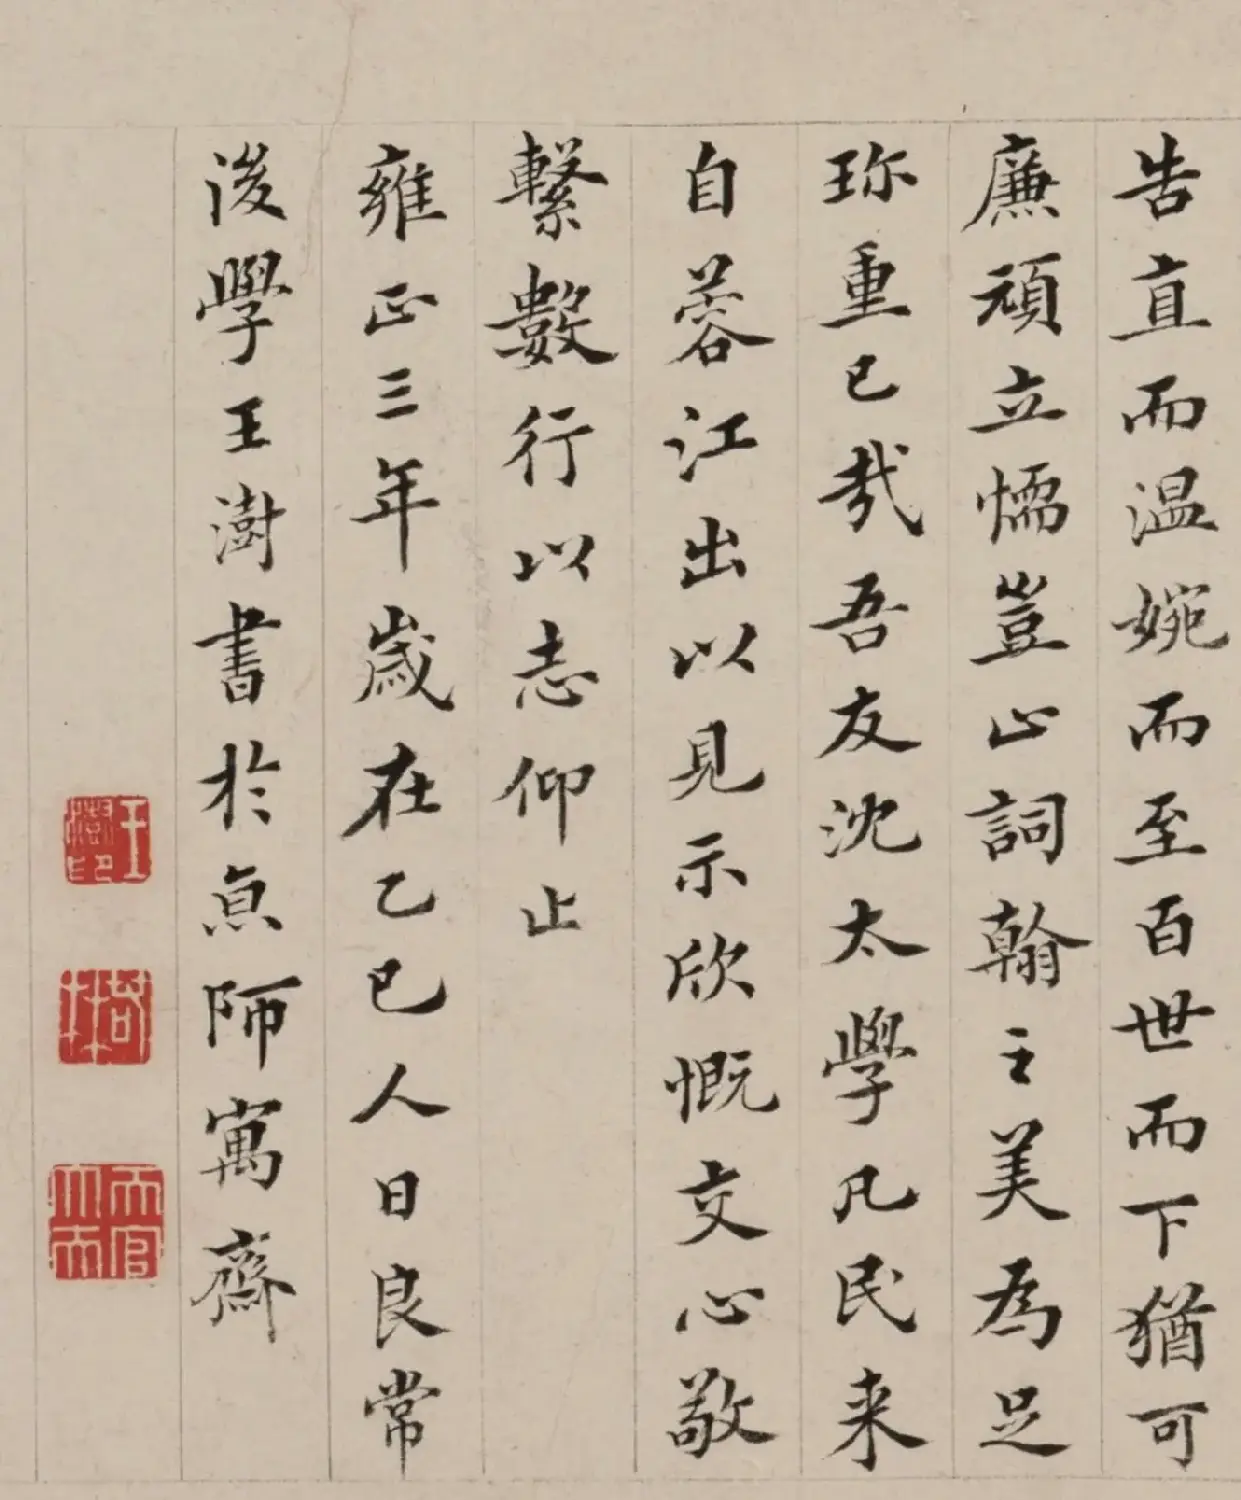 告直而温婉而至百世而下猶可
廉頑立懦豈止詞翰之美為足
珎重已哉吾友沈太學凡民来
自蓉江出以見示欣慨交心敬
繫數行以志仰止
雍正三年歲在乙巳人日良常
後學王澍書於京師寓齋
王澍印